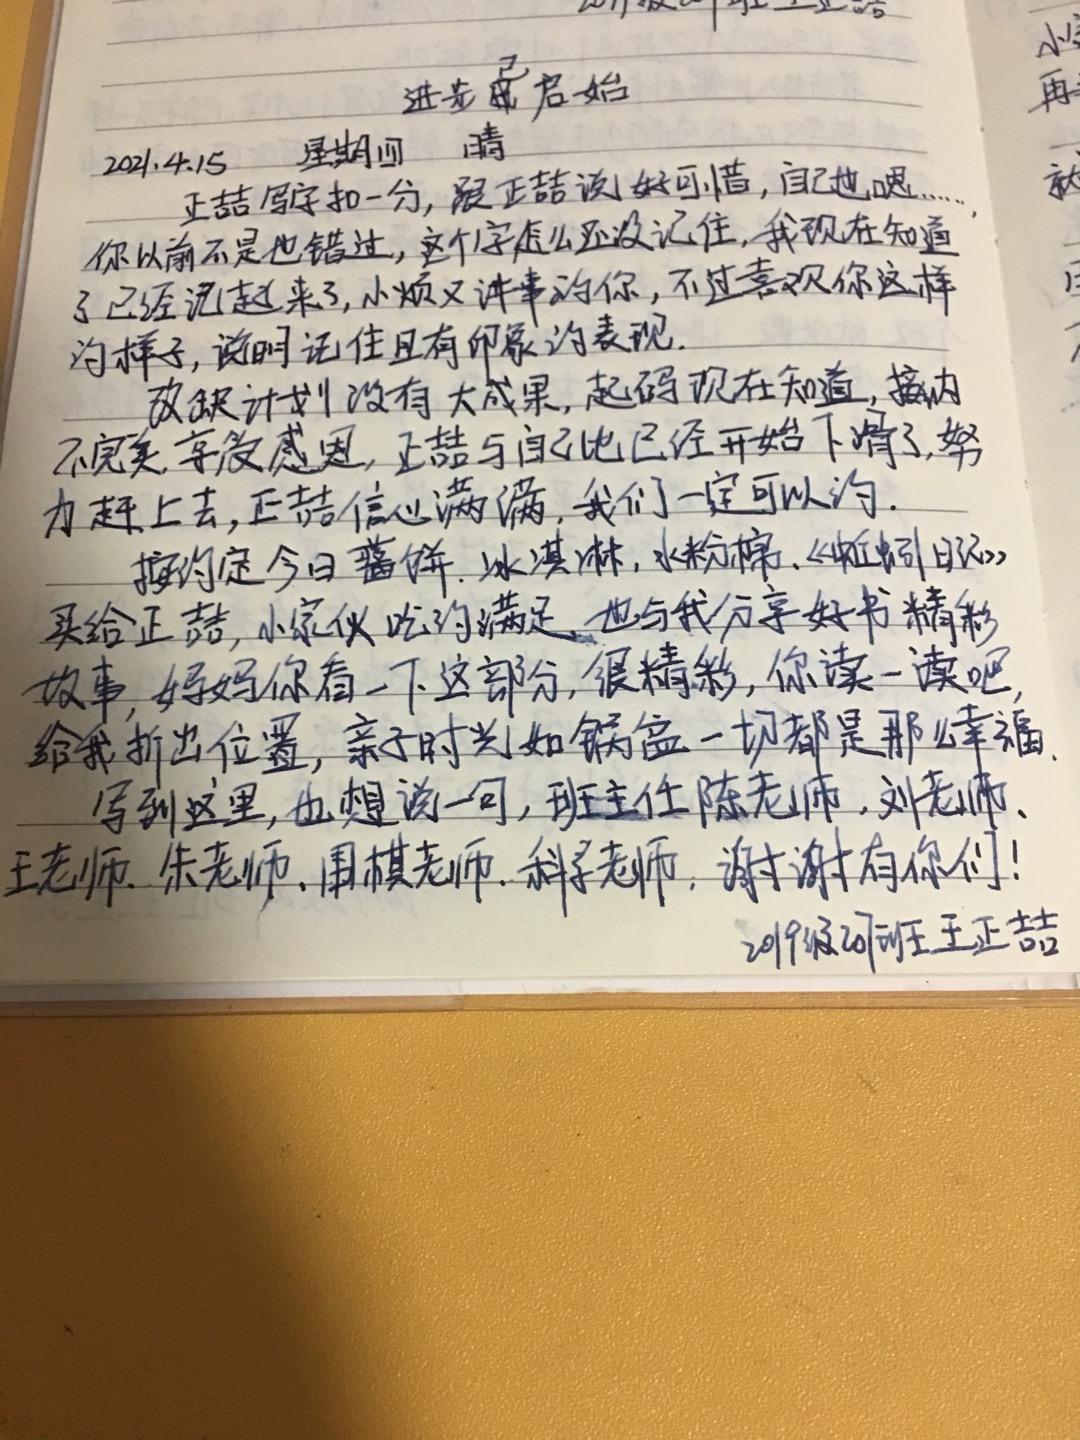 2019级20班王正喆
进步已启始
2021.4.15 星期四 晴
正喆写字扣一分,跟正喆说好可惜,自己也嗯......,
你以前不是也错过,这个字怎么还没记住,我现在知道
了已经记起来了,小烦又讲事的你,不过喜欢你这样
的样子,说明记住且有印象的表现.
改缺计划没有大成果,起码现在知道,接内
不完美,享受感恩,正喆与自己比已经开始下滑了,努
力赶上去,正喆信心满满,我们一定可以的.
按约定今日酱饼、冰淇淋,水粉棉、《蚯蚓日记》
买给正喆,小家伙吃的满足、也与我分享好书精彩
故事,妈妈你看一下这部分,很精彩,你读一读吧,
给我折出位置,亲子时光如锅盔一切都是那么幸福.
写到这里,也想说一句,班主任陈老师、刘老师、
王老师、朱老师、围棋老师、科学老师,谢谢有你们!
2019级20班王正喆
小
再
就